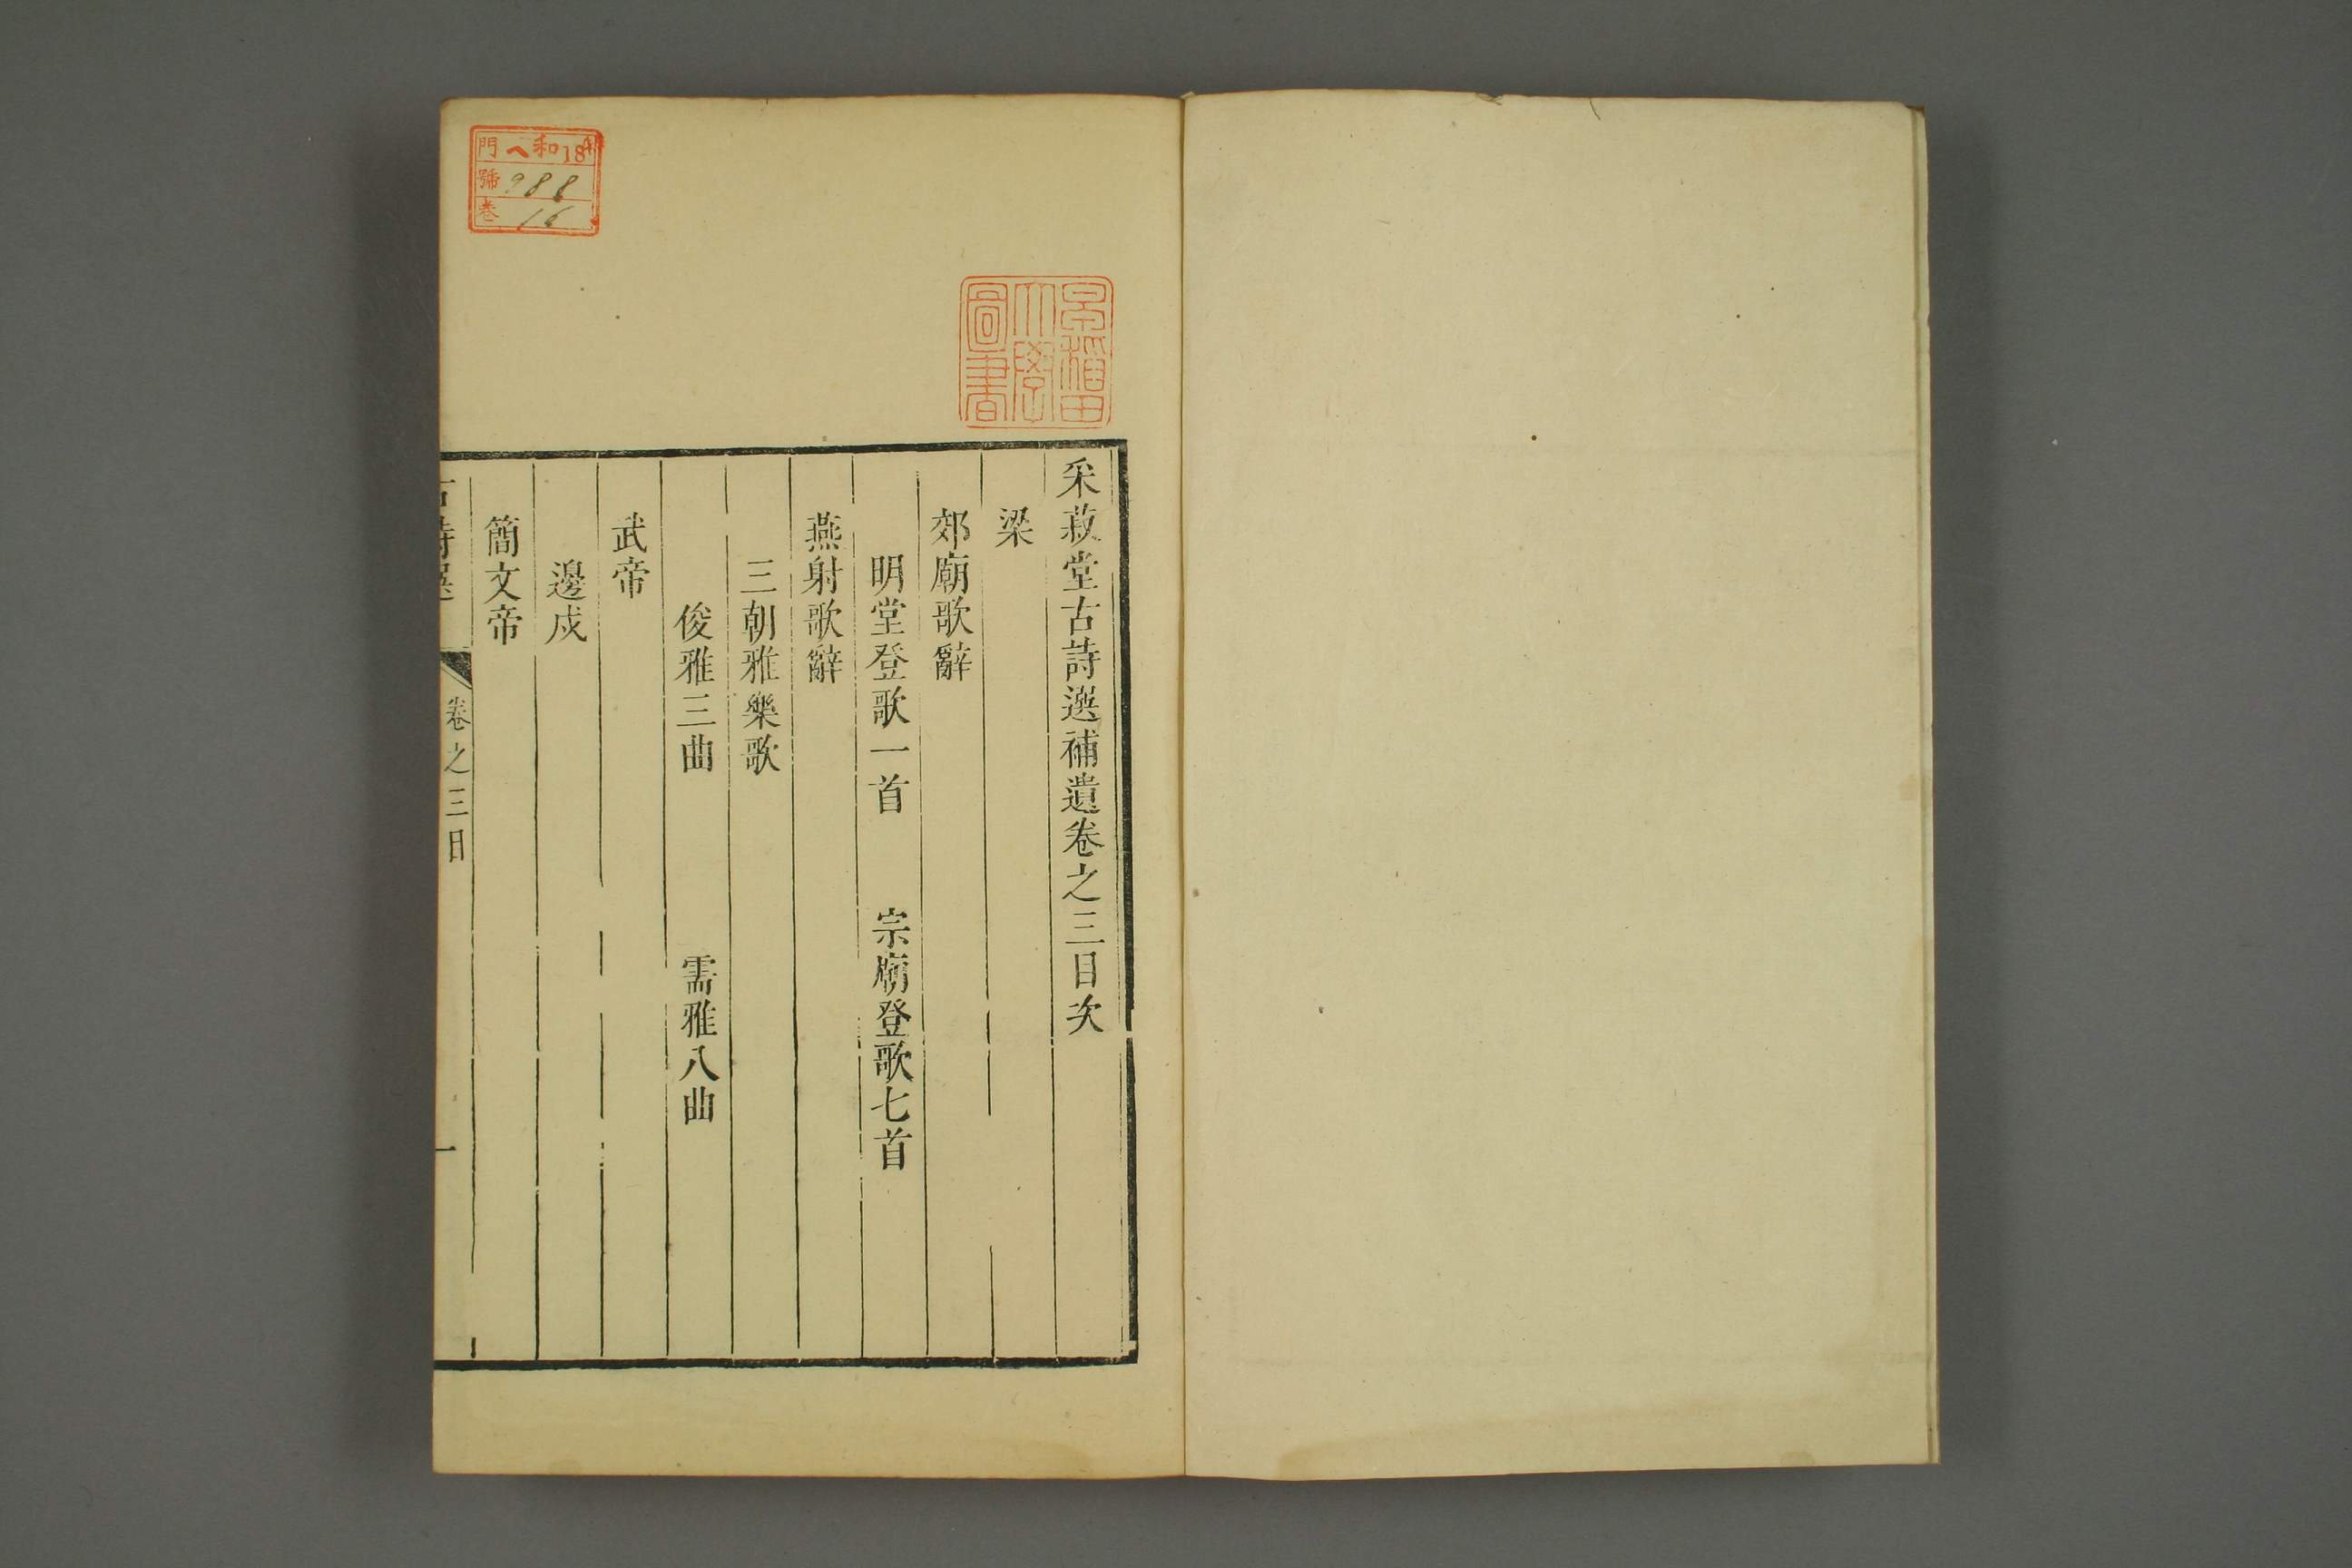 采菽堂古詩選補遺卷之三目次
梁
郊廟歌辭
明堂登歌一首 宗廟登歌七首
燕射歌辭
三朝雅樂歌
俊雅三曲 需雅八曲
武帝
邊戍
簡文帝
古詩選 卷之三目 一
早稻田
大學
圖書
門 ヘ18
號 988
卷 16